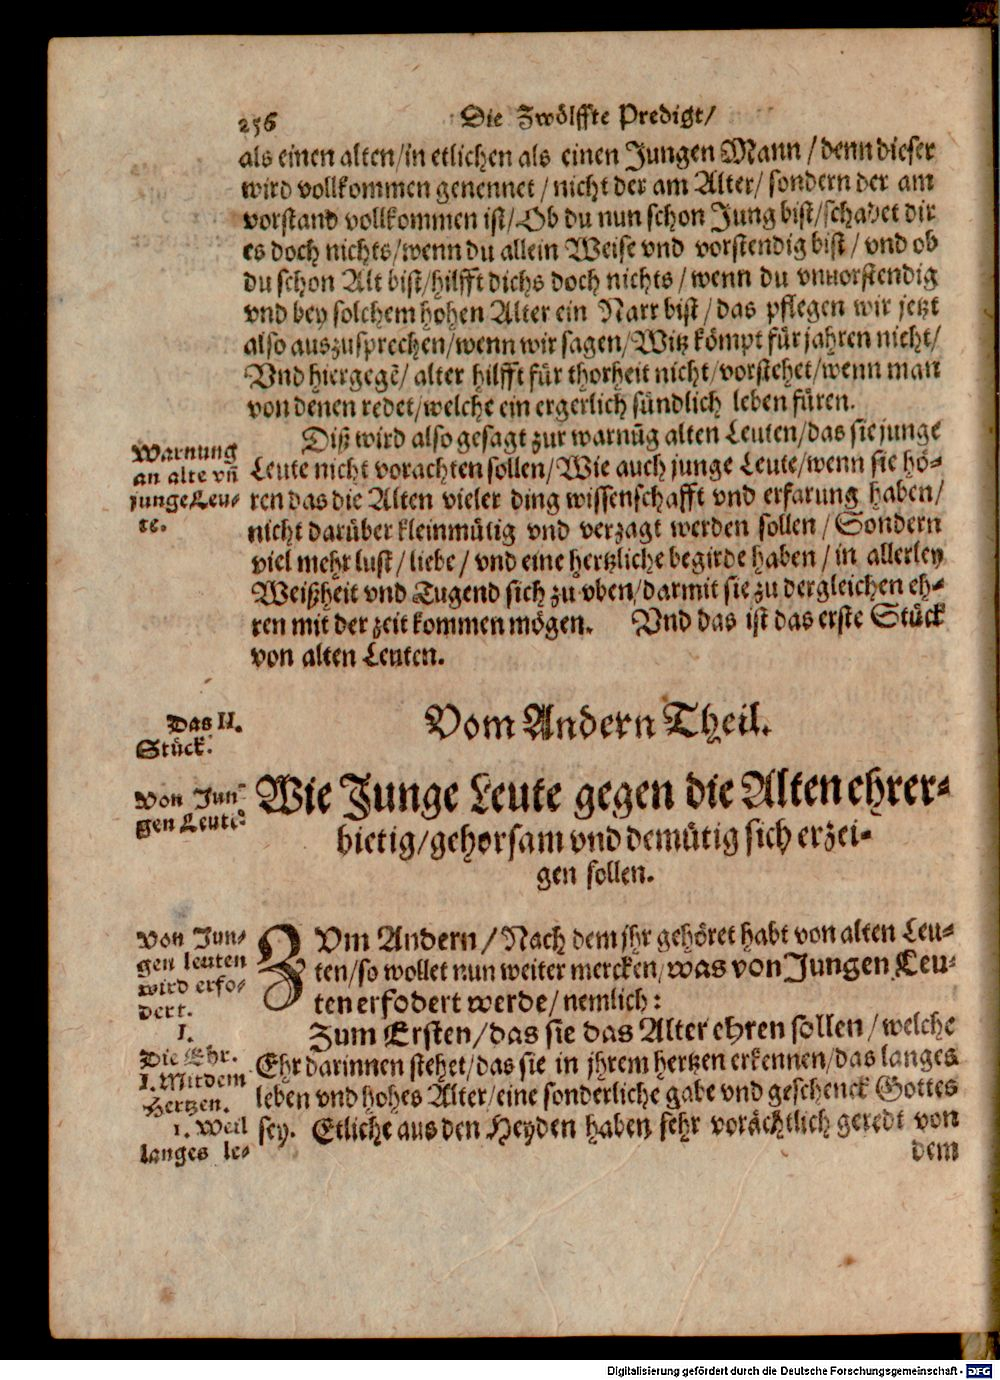 256
Die Zwölffte Predigt/
als einen alten/in etlichen als einen Jungen Mann/denn dieser
wird vollkommen genennet/nicht der am Alter/sondern der am
vorstand vollkommen ist/Ob du nun schon Jung bist/schadet dir
es doch nichts/wenn du allein Weise vnd vorstendig bist/vnd ob
du schon Alt bist/hilfft dichs doch nichts/wenn du vnuorstendig
vnd bey solchem hohen Alter ein Narr bist/das pflegen wir jetzt
also auszusprechen/wenn wir sagen/Witz kömpt für jahren nicht/
Vnd hiergegẽ/alter hilfft für thorheit nicht/vorstehet/wenn man
von denen redet/welche ein ergerlich sündlich leben füren.
Warnung
an alte vñ
junge Leu-
te.
Diß wird also gesagt zur warnũg alten Leuten/das sie junge
Leute nicht vorachten sollen/Wie auch junge Leute/wenn sie hö-
ren das die Alten vieler ding wissenschafft vnd erfarung haben/
nicht darüber kleinmütig vnd verzagt werden sollen/Sondern
viel mehr lust/liebe/vnd eine hertzliche begirde haben/in allerley
Weißheit vnd Tugend sich zu vben/darmit sie zu dergleichen eh-
ren mit der zeit kommen mögen. Vnd das ist das erste Stück
von alten Leuten.
Das II.
Stück.
Vom Andern Theil.
Von Jun-
gen Leute.
Wie Junge Leute gegen die Alten ehrer-
bietig/gehorsam vnd demütig sich erzei-
gen sollen.
Von Jun-
gen leuten
wird erfo-
dert.
I.
Die Ehr.
1. Mit dem
Hertzen.
1. Weil
langes le-
ZVm Andern/Nach dem jhr gehöret habt von alten Leu-
ten/so wollet nun weiter mercken/was von Jungen Leu-
ten erfodert werde/nemlich:
Zum Ersten/das sie das Alter ehren sollen/welche
Ehr darinnen stehet/das sie in jhrem hertzen erkennen/das langes
leben vnd hohes Alter/eine sonderliche gabe vnd geschenck Gottes
sey. Etliche aus den Heyden haben sehr vorächtlich geredt von
dem
Digitalisierung gefördert durch die Deutsche Forschungsgemeinschaft - DFG